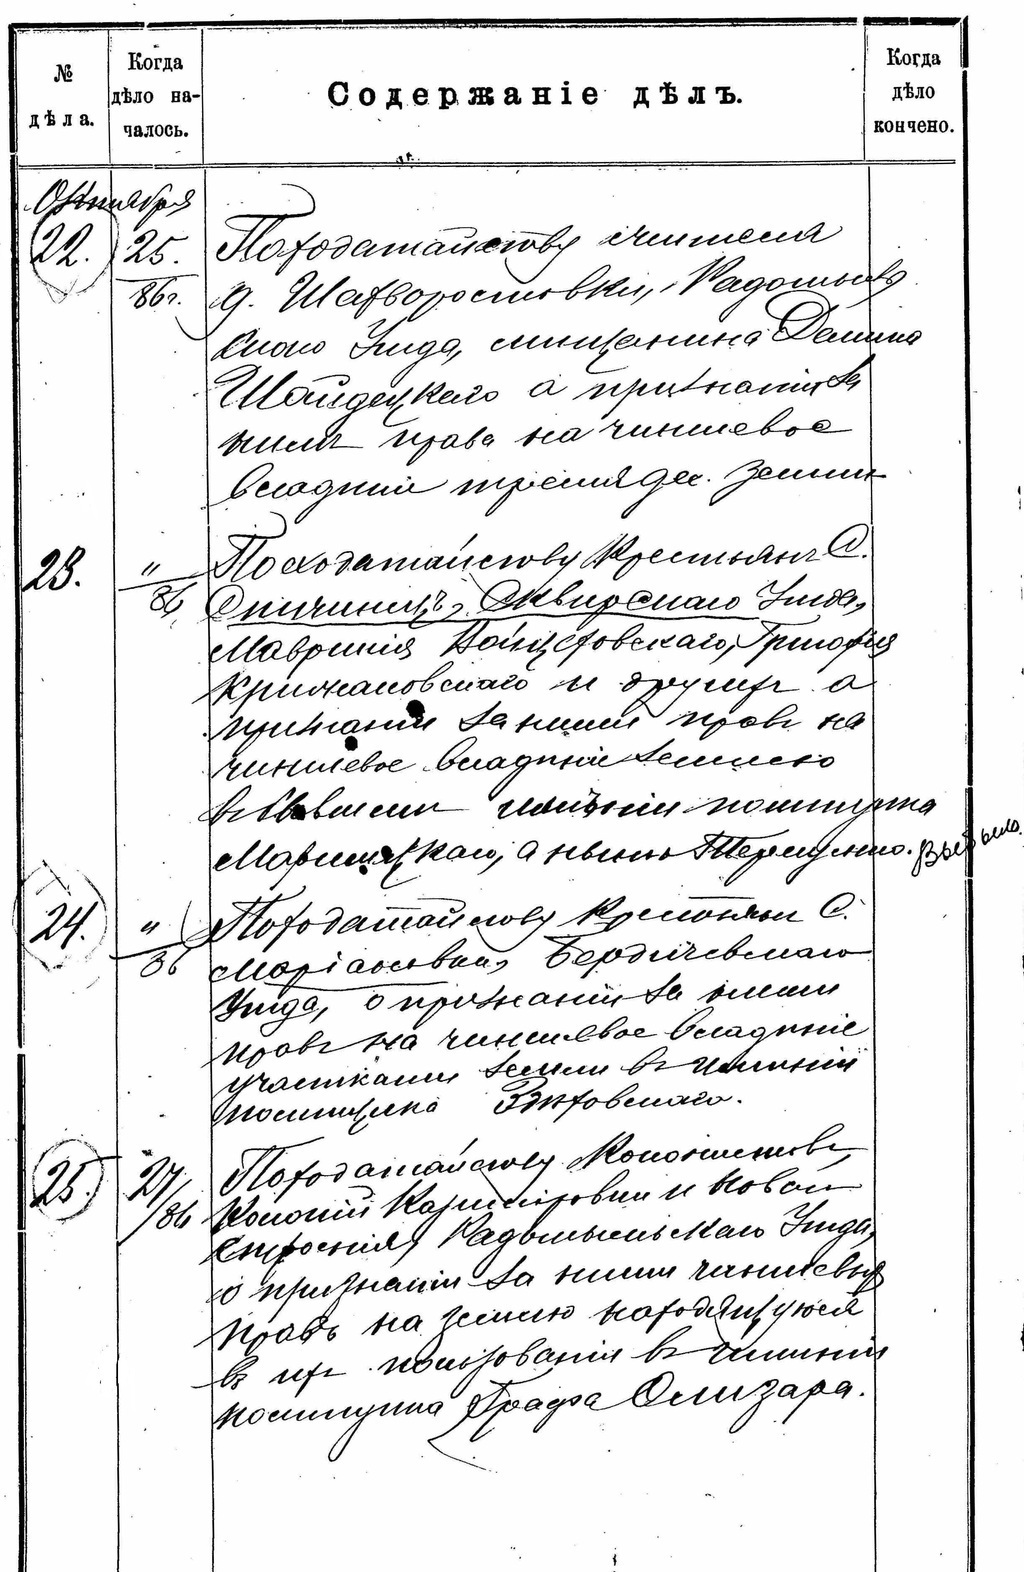 № дѣла.
Когда дѣло на-
чалось.
Содержаніе дѣлъ.
Когда дѣло кончено.
Октября
22.
25.
86 г.
По ходатайству
д. Шахворостовки, Радомысль
скаго Уѣзда, мѣщанина
Шайдецкаго о признаніи за
нимъ права на чиншевое
владѣніе тремя дес. земли
23.
"
86
По ходатайству Крестьянъ С.
Сквирскаго Уѣзда,
Григорія
Крижановскаго и другихъ о
признаніи за ними правъ на
чиншевое владѣніе землею
въ бывшемъ имѣніи помѣщика
а нынѣ
24.
"
86
По ходатайству крестьянъ С.
Маріановки, Бердичевскаго
Уѣзда, о признаніи за ними
правъ на чиншевое владѣніе
участками земли въ имѣніи
помѣщика
25.
27
/86
По ходатайству Колонистовъ,
Колоніи Казиміровки и Новой
Радомысльскаго Уѣзда,
о признаніи за ними чиншевыхъ
правъ на землю находящуюся
въ ихъ пользованіи въ имѣніи
помѣщика Графа Олизара.